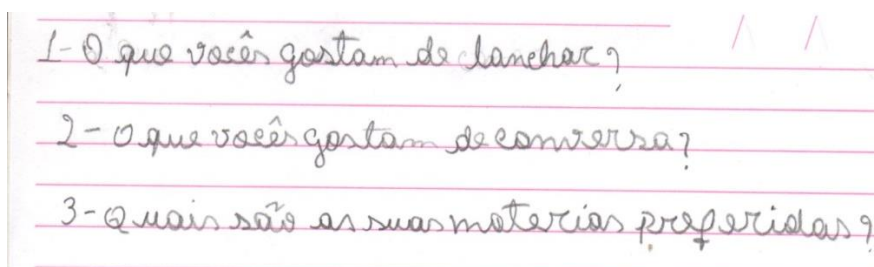 1- O que vocês gostam de lanchar?
2- O que vocês gostam de conversa?
3- Quais são as suas materias preferidas?